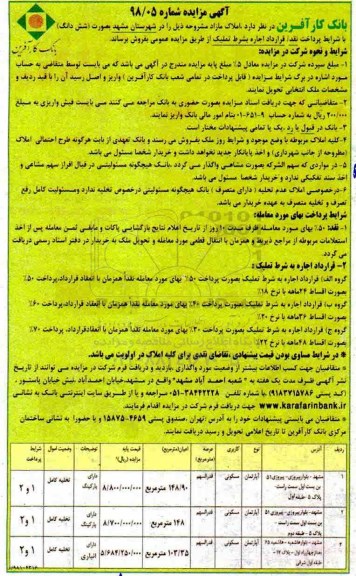 آگهی مزایده شماره ۹۸/۰۵
بانک کارآفرین در نظر دارد، املاک مازاد مشروحه ذیل را در شهرستان مشهد بصورت (شش دانگ)
با شرایط پرداخت نقد/ قرارداد اجاره بشرط تملیک از طریق مزایده عمومی بفروش برساند.
بانک کارآفرین
شرایط و نحوه شرکت در مزایده:
۱- مبلغ سپرده شرکت در مزایده معادل ۵٪ مبلغ پایه مزایده مندرج در آگهی می باشد که می بایست توسط متقاضی به حساب
مورد اشاره در برگ شرایط مزایده ( قابل پرداخت در تمامی شعب بانک کارآفرین ) واریز و اصل رسید آن را با قید ردیف و
مشخصات ملک انتخابی تحویل نمایند.
۲- متقاضیانی که جهت دریافت اسناد مزایده بصورت حضوری به بانک مراجعه می کنند می بایست فیش واریزی به مبلغ
۲۰۰/۰۰۰ ریال به شماره حساب ۰۱-۶۵۱-۹۰ بنام امور مالی بانک واریز نمایند.
۳- بانک در قبول یا رد، یک یا تمامی پیشنهادات مختار است.
۴- کلیه املاک مربوطه با وضع موجود و شرایط روز ملک بفروش می رسند و بانک تعهدی از بابت هرگونه طرح احتمالی املاک
(مطروحه از جانب شهرداری) و اخذ پایانکار جدید نخواهد داشت و خریدار شخصا مسئول می باشد.
۵- در مواردی که سهم الشرکه بصورت مشاعی واگذار می گردد، بانک هیچگونه مسئولیتی در قبال افراز سهم مشاعی و
اخذ سند تفکیکی ندارد و خریدار شخصا مسئول می باشد.
۶- درخصوص املاک عدم تخلیه ( دارای متصرف ) بانک هیچگونه مسئولیتی درخصوص تخلیه ندارد ومسئولیت کامل رفع
تصرف و تخلیه متصرف به عهده خریدار می باشد.
شرایط پرداخت بهای مورد معامله:
۱- نقد: ۵۰٪ بهای مورد معامله ظرف مدت ۲۰ روز از تاریخ اعلام نتایج بازگشایی پاکات و مابقی ثمن معامله پس از اخذ
استعلامات مربوطه از مراجع ذیربط و همزمان با انتقال قطعی مورد معامله و تحویل ملک به خریدار در دفتر اسناد رسمی دریافت
می گردد.
۲- قرارداد اجاره به شرط تملیک:
گروه الف) قرارداد اجاره به شرط تملیک بصورت پرداخت ۵۰٪ بهای مورد معامله نقداً همزمان با انعقاد قرارداد، پرداخت ۵۰٪
بصورت اقساط ۲۴ ماهه با نرخ ۱۸٪
گروه ب) قرارداد اجاره به شرط تملیک بصورت پرداخت ۴۰٪ بهای مورد معامله نقداً همزمان با انعقاد قرارداد، پرداخت ۶۰٪
بصورت اقساط ۳۶ ماهه با نرخ ۲۰٪
گروه ج) قرارداد اجاره به شرط تملیک بصورت پرداخت ۳۰٪ بهای مورد معامله نقداً همزمان با انعقاد قرارداد، پرداخت ۷۰٪
بصورت اقساط ۴۸ ماهه با نرخ ۲۲٪
* در شرایط مساوی بودن قیمت پیشنهادی، تقاضای نقدی برای کلیه املاک در اولویت می باشد.
* متقاضیان جهت کسب اطلاعات بیشتر از وضعیت مورد واگذاری، بازدید و دریافت فرم شرکت در مزایده می توانند از تاریخ
نشر آگهی ظرف مدت یک هفته به " شعبه احمد آباد مشهد" واقع در مشهد، خیابان احمدآباد، نبش خیابان پاستور،
کد پستی ۹۱۸۳۷۱۵۷۸۶، با شماره تلفن ۰۵۱-۳۸۴۴۲۲۲۸ مراجعه و یا از طریق سایت اینترنتی بانک به نشانی
www.karafarinbank.ir جهت دریافت فرم شرکت در مزایده اقدام فرمایند.
* متقاضیان می بایستی پیشنهادات خود را به آدرس تهران، صندوق پستی ۴۶۵۹-۱۵۸۷۵ و یا حضورا به نشانی ساختمان
مرکزی بانک کارآفرین تا تاریخ اعلامی تحویل و رسید دریافت نمایند.
ردیف آدرس نوع کاربری عرصه (مترمربع) اعیان (مترمربع) قیمت پایه مزایده (ریال) توضیحات وضعیت تحویل شرایط پرداخت
۱ آپارتمان مسکونی قدرالسهم ۱۴۸/۹۰ مترمربع ۸/۸۰۰/۰۰۰/۰۰۰ دارای پارکینگ تخلیه کامل ۱ و ۲
۲ آپارتمان مسکونی قدرالسهم ۱۴۸ مترمربع ۸/۷۰۰/۰۰۰/۰۰۰ دارای پارکینگ تخلیه کامل ۱ و ۲
۳ آپارتمان مسکونی قدرالسهم ۱۰۳/۳۵ مترمربع ۵/۶۸۴/۲۵۰/۰۰۰ دارای انباری تخلیه کامل ۱ و ۲